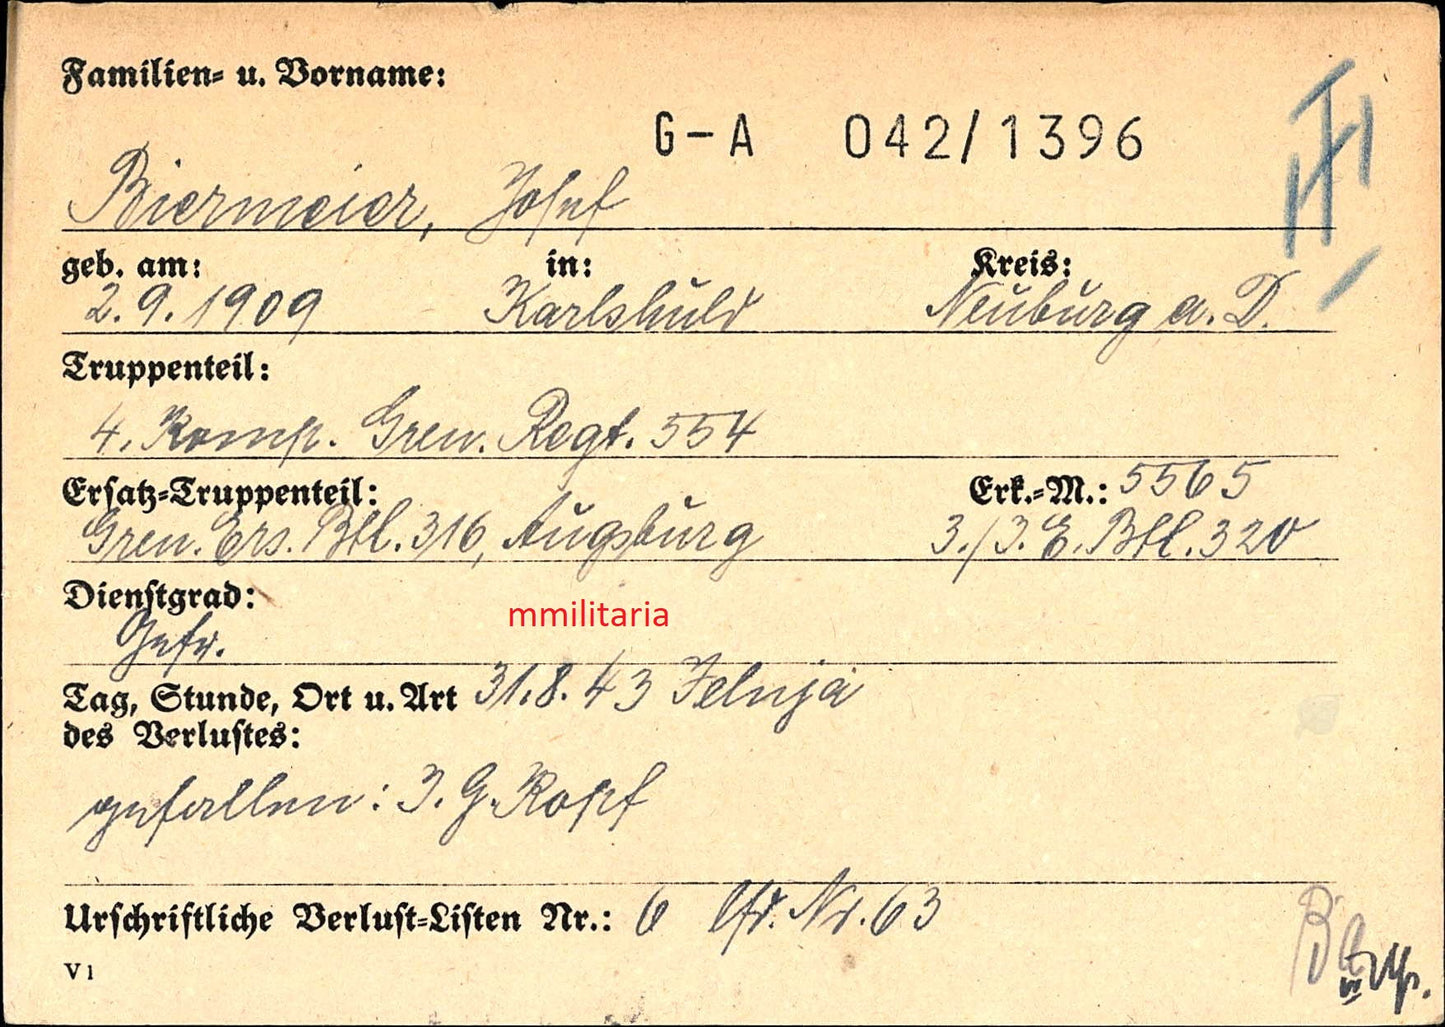 Familien- u. Vorname:
G-A 042/1396
Biermeier, Josef
geb. am: in: Kreis:
2.9.1909 Karlshuld Neuburg a. D.
Truppenteil:
4. Komp. Gren. Regt. 554
Ersatz-Truppenteil: Erk.-M.: 5565
Gren. Ers. Btl. 316, Augsburg 3./J.E. Btl. 320
Dienstgrad:
Gefr.
mmilitaria
Tag, Stunde, Ort u. Art 31.8.43 Jelnja
des Verlustes:
gefallen: I. G. Kopf
Urschriftliche Verlust-Listen Nr.: 6 lfd. Nr. 63
V1